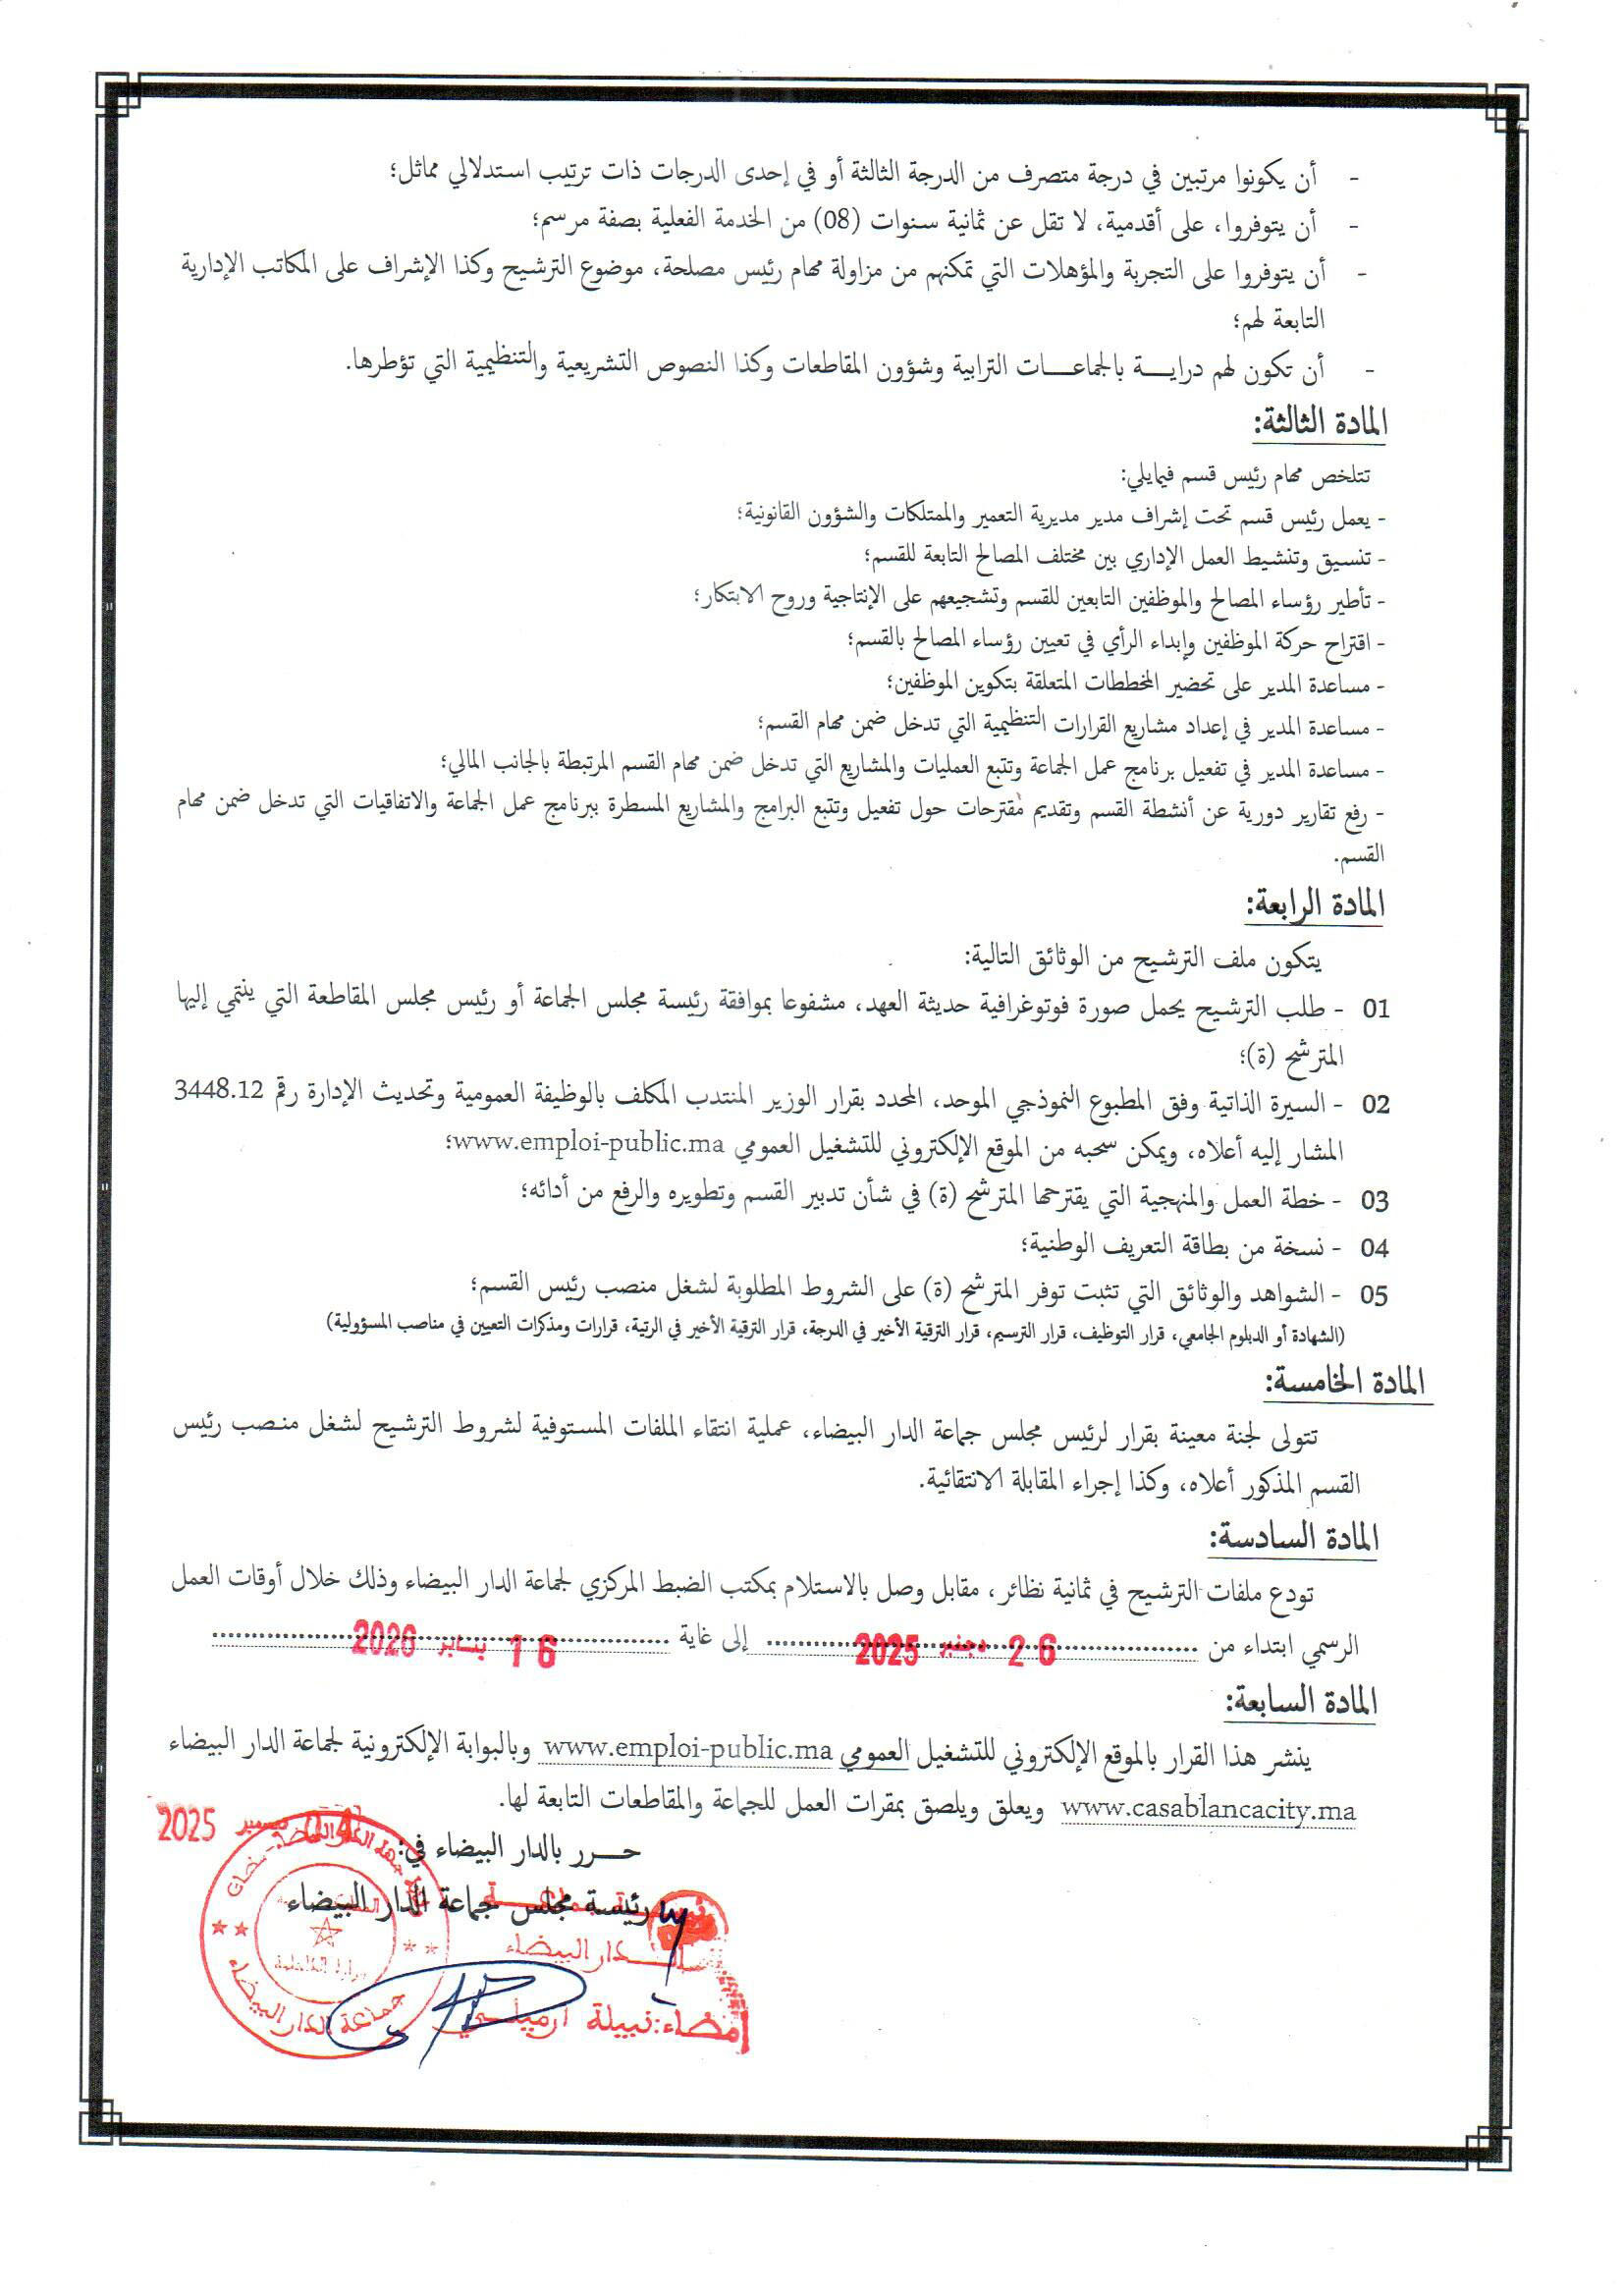 - أن يكونوا مرتبين في درجة متصرف من الدرجة الثالثة أو في إحدى الدرجات ذات ترتيب استدلالي مماثل؛
- أن يتوفروا، على أقدمية، لا تقل عن ثمانية سنوات (08) من الخدمة الفعلية بصفة مرسم؛
- أن يتوفروا على التجربة والمؤهلات التي تمكنهم من مزاولة مهام رئيس مصلحة، موضوع الترشيح وكذا الإشراف على المكاتب الإدارية
التابعة لهم؛
- أن تكون لهم درايـــة بالجماعـــات الترابية وشؤون المقاطعات وكذا النصوص التشريعية والتنظيمية التي تؤطرها.
المادة الثالثة:
تتلخص مهام رئيس قسم فيمايلي:
- يعمل رئيس قسم تحت إشراف مدير مديرية التعمير والممتلكات والشؤون القانونية؛
- تنسيق وتنشيط العمل الإداري بين مختلف المصالح التابعة للقسم؛
- تأطير رؤساء المصالح والموظفين التابعين للقسم وتشجيعهم على الإنتاجية وروح الابتكار؛
- اقتراح حركة الموظفين وإبداء الرأي في تعيين رؤساء المصالح بالقسم؛
- مساعدة المدير على تحضير المخططات المتعلقة بتكوين الموظفين؛
- مساعدة المدير في إعداد مشاريع القرارات التنظيمية التي تدخل ضمن مهام القسم؛
- مساعدة المدير في تفعيل برنامج عمل الجماعة وتتبع العمليات والمشاريع التي تدخل ضمن مهام القسم المرتبطة بالجانب المالي؛
- رفع تقارير دورية عن أنشطة القسم وتقديم مقترحات حول تفعيل وتتبع البرامج والمشاريع المسطرة ببرنامج عمل الجماعة والاتفاقيات التي تدخل ضمن مهام
القسم.
المادة الرابعة:
يتكون ملف الترشيح من الوثائق التالية:
01 - طلب الترشيح يحمل صورة فوتوغرافية حديثة العهد، مشفوعا بموافقة رئيسة مجلس الجماعة أو رئيس مجلس المقاطعة التي ينتمي إليها
المترشح (ة)؛
02 - السيرة الذاتية وفق المطبوع النموذجي الموحد، المحدد بقرار الوزير المنتدب المكلف بالوظيفة العمومية وتحديث الإدارة رقم 3448.12
المشار إليه أعلاه، ويمكن سحبه من الموقع الإلكتروني للتشغيل العمومي www.emploi-public.ma؛
03 - خطة العمل والمنهجية التي يقترحها المترشح (ة) في شأن تدبير القسم وتطويره والرفع من أدائه؛
04 - نسخة من بطاقة التعريف الوطنية؛
05 - الشواهد والوثائق التي تثبت توفر المترشح (ة) على الشروط المطلوبة لشغل منصب رئيس القسم؛
(الشهادة أو الدبلوم الجامعي، قرار التوظيف، قرار الترسيم، قرار الترقية الأخير في الدرجة، قرار الترقية الأخير في الرتبة، قرارات ومذكرات التعيين في مناصب المسؤولية)
المادة الخامسة:
تتولى لجنة معينة بقرار لرئيس مجلس جماعة الدار البيضاء، عملية انتقاء الملفات المستوفية لشروط الترشيح لشغل منصب رئيس
القسم المذكور أعلاه، وكذا إجراء المقابلة الانتقائية.
المادة السادسة:
تودع ملفات الترشيح في ثمانية نظائر، مقابل وصل بالاستلام بمكتب الضبط المركزي لجماعة الدار البيضاء وذلك خلال أوقات العمل
الرسمي ابتداء من 26 دجنبر 2025 إلى غاية 16 يناير 2026
المادة السابعة:
ينشر هذا القرار بالموقع الإلكتروني للتشغيل العمومي www.emploi-public.ma وبالبوابة الإلكترونية لجماعة الدار البيضاء
www.casablancacity.ma ويعلق ويلصق بمقرات العمل للجماعة والمقاطعات التابعة لها.
حـــرر بالدار البيضاء في: 2025
رئيسة مجلس جماعة الدار البيضاء
الـــدار البيضاء
إمضاء: نبيلة ارميلي
جماعة الدار البيضاء